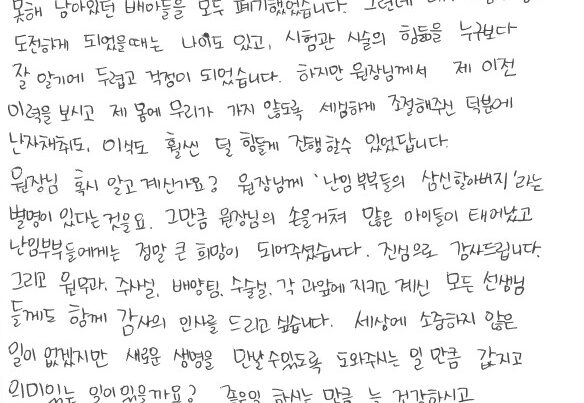 못해 남아있던 배아들을 모두 폐기했었습니다. 그런데
도전하게 되었을때는 나이도 있고, 시험관 시술의 힘듦을 누구보다
잘 알기에 두렵고 걱정이 되었습니다. 하지만 원장님께서 제 이전
이력을 보시고 제 몸에 무리가 가지 않도록 세심하게 조절해주신 덕분에
난자채취도, 이식도 훨씬 덜 힘들게 진행할수 있었답니다.
원장님 혹시 알고계신가요? 원장님께 '난임부부들의 삼신할아버지'라는
별명이 있다는것을요. 그만큼 원장님의 손을거쳐 많은 아이들이 태어났고
난임부부들에게는 정말 큰 희망이 되어주셨습니다. 진심으로 감사드립니다.
그리고 원무과, 주사실, 배양팀, 수술실, 각 과앞에 지키고 계신 모든 선생님
들께도 함께 감사의 인사를 드리고 싶습니다. 세상에 소중하지 않은
일이 없겠지만 새로운 생명을 만날수있도록 도와주시는 일 만큼 값지고
의미있는 일이 있을까요? 좋은일 하시는 만큼 늘 건강하시고